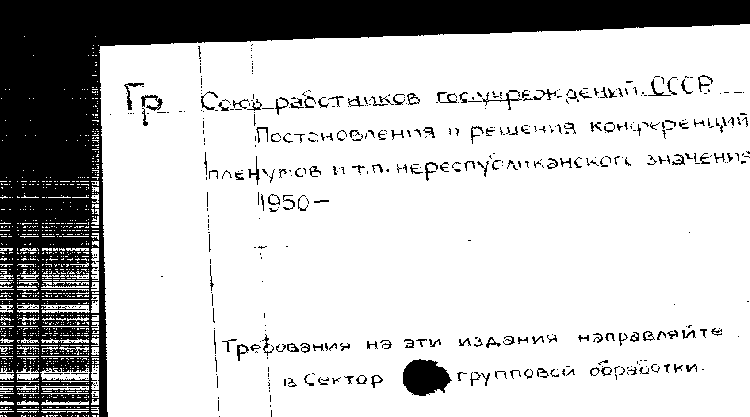 Гр Союз работников гос.учреждений СССР
Постановления и решения конференций
пленумов и т.п. нереспубликанского значения
1950—
Требования на эти издания направляйте
в Сектор групповой обработки.